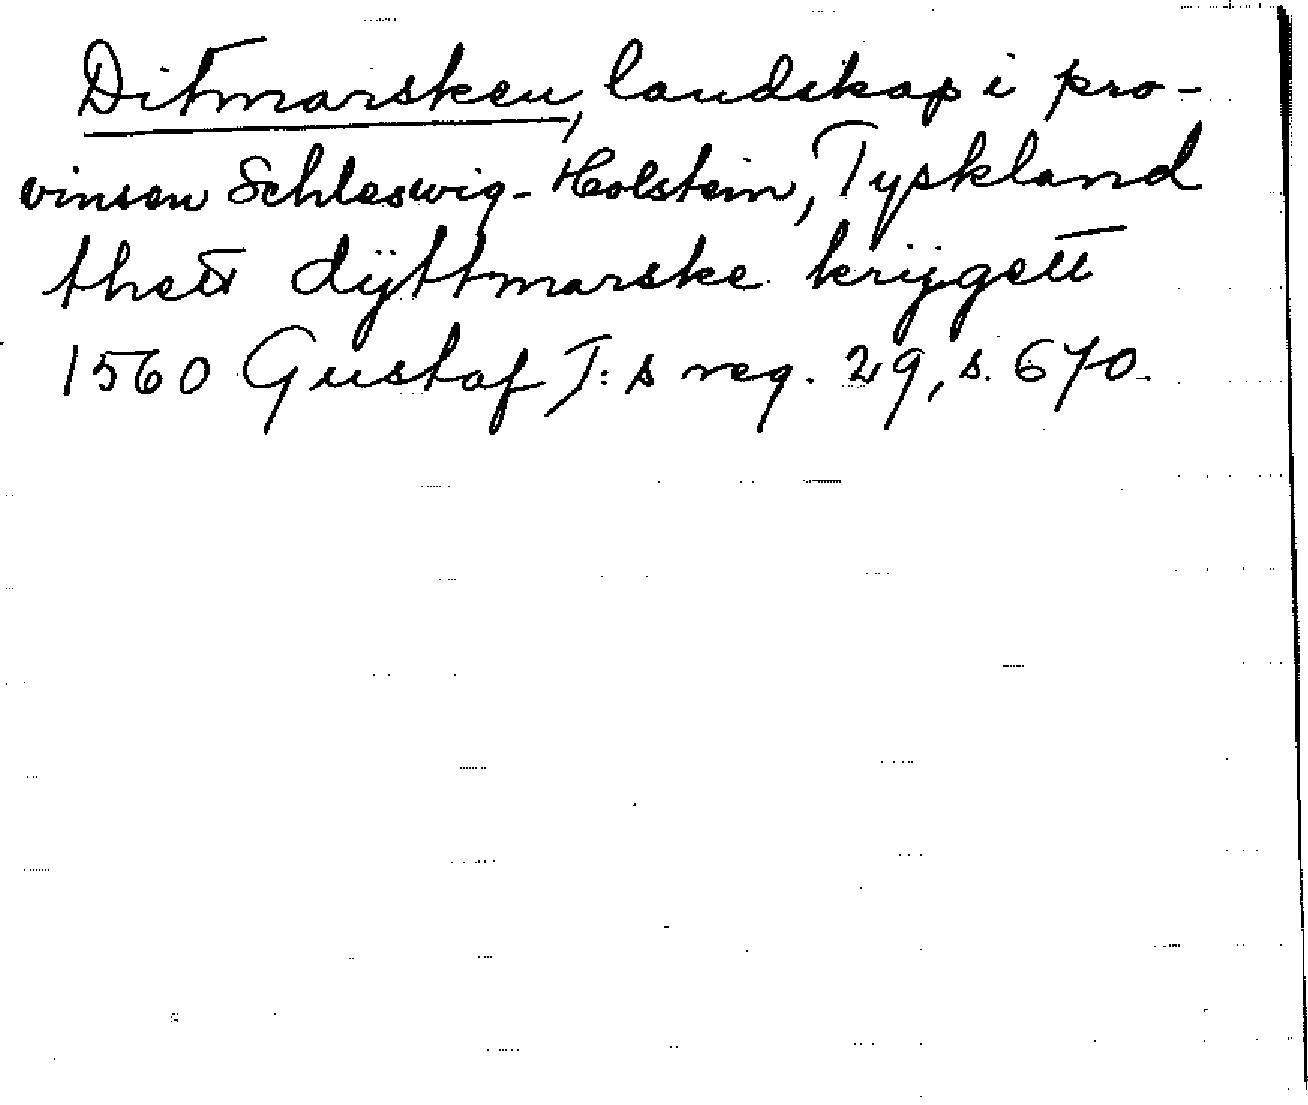 Ditmarsken, landskap i pro-
vinsen Schleswig-Holstein, Tyskland
thett dÿttmarske krijgett
1560 Gustaf I:s reg. 29, s. 670.